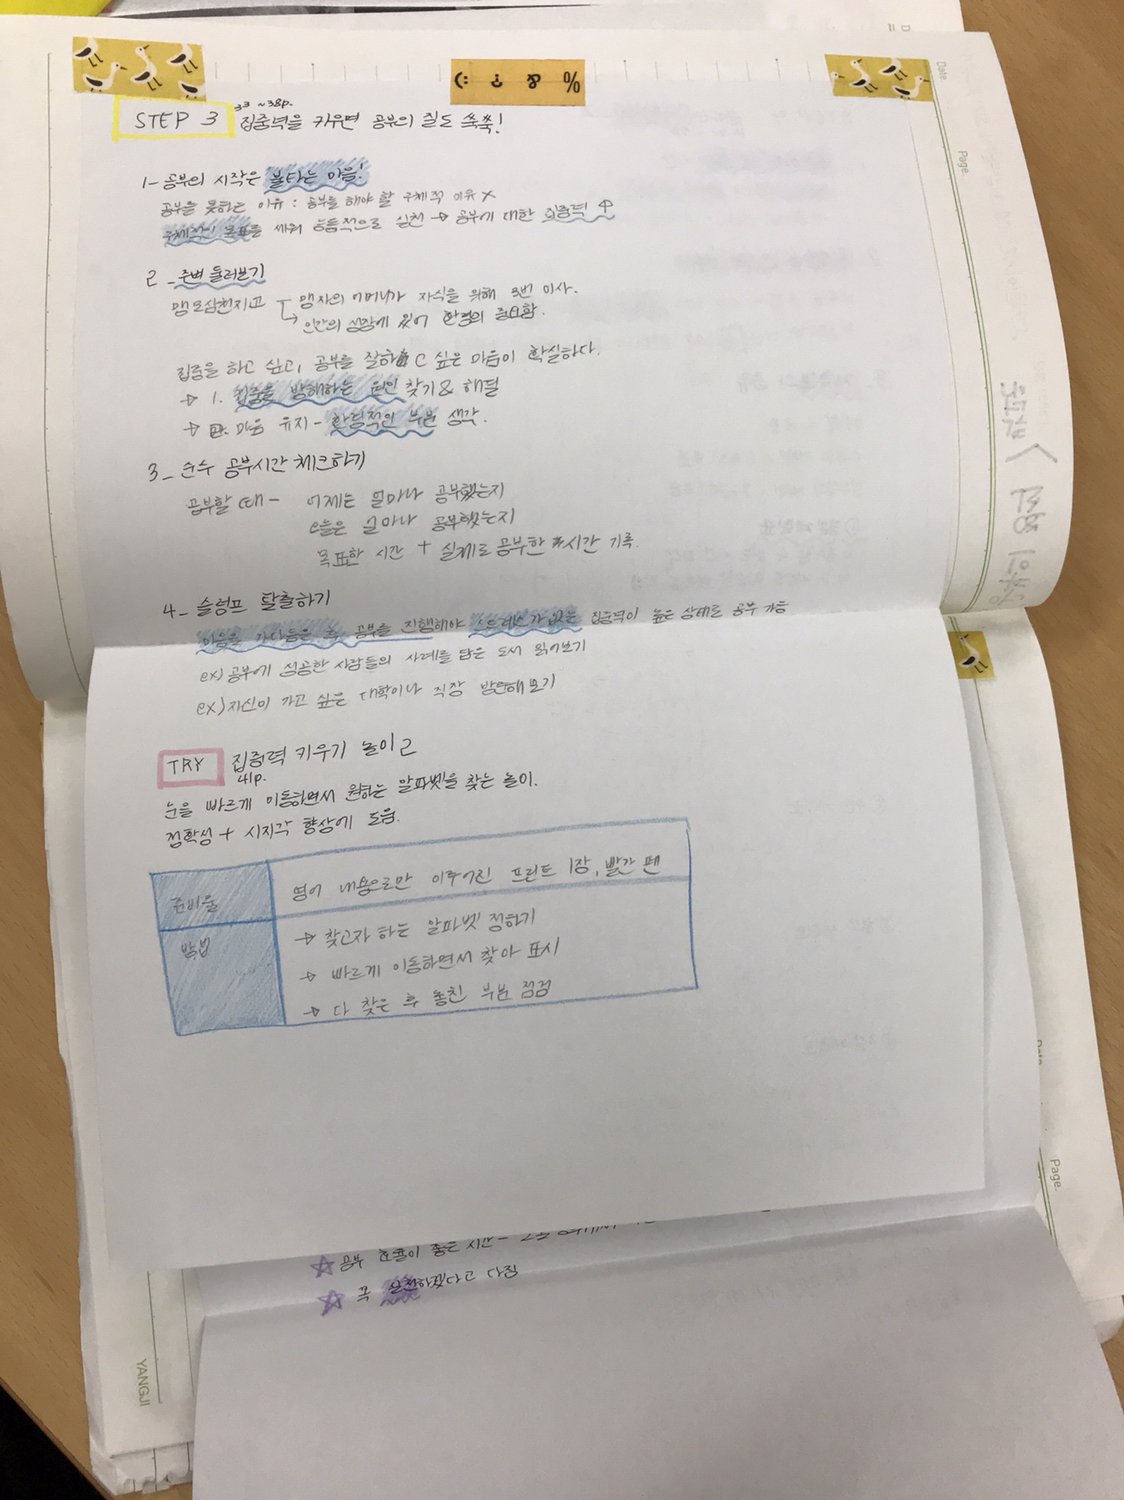 (: ¿ %
STEP 3
33 ~38p.
집중력을 키우면 공부의 질도 쑥쑥!
1- 공부의 시작은 불타는 마음!
공부를 못하는 이유 : 공부를 해야 할 구체적 이유 X
구체적인 목표를 세워 능동적으로 실천 → 공부에 대한 집중력 ↑
2 - 주변 둘러보기
맹모삼천지교
맹자의 어머니가 자식을 위해 3번 이사.
→ 인간의 성장에 있어 환경의 중요함.
집중을 하고 싶고, 공부를 잘하고 싶은 마음이 확실하다.
→ 1. 집중을 방해하는 원인 찾기 & 해결
→ 2. 마음 유지 - 환경적인 부분 생각.
3 - 순수 공부시간 체크하기
공부할 때 - 어제는 얼마나 공부했는지
오늘은 얼마나 공부했는지
목표한 시간 + 실제로 공부한 시간 기록.
4 - 슬럼프 탈출하기
마음을 가다듬은 후 공부를 진행해야 스트레스가 없는 집중력이 높은 상태로 공부 가능
ex) 공부에 성공한 사람들의 사례를 담은 도서 읽어보기
ex) 자신이 가고 싶은 대학이나 직장 방문해보기
TRY 집중력 키우기 놀이 2
41p.
눈을 빠르게 이동하면서 원하는 알파벳을 찾는 놀이.
정확성 + 시지각 향상에 도움.
준비물 영어 내용으로만 이루어진 프린트 1장, 빨간 펜
방법 → 찾고자 하는 알파벳 정하기
→ 빠르게 이동하면서 찾아 표시
→ 다 찾은 후 놓친 부분 점검
☆ 공부 효율이 좋은 시간 -
☆ 꼭 실천하겠다고 다짐
Date
Page.
Page.
YANGJI